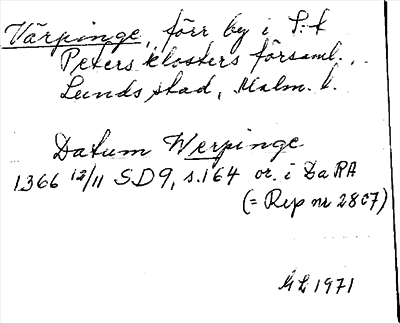 Värpinge, förr by i S:t
Peters klosters församl.,
Lunds stad, Malm. l.
Datum Werpinge
1366 12/11 SD 9, s. 164 or. i DaRA
(= Rep nr 2807)
GL 1971